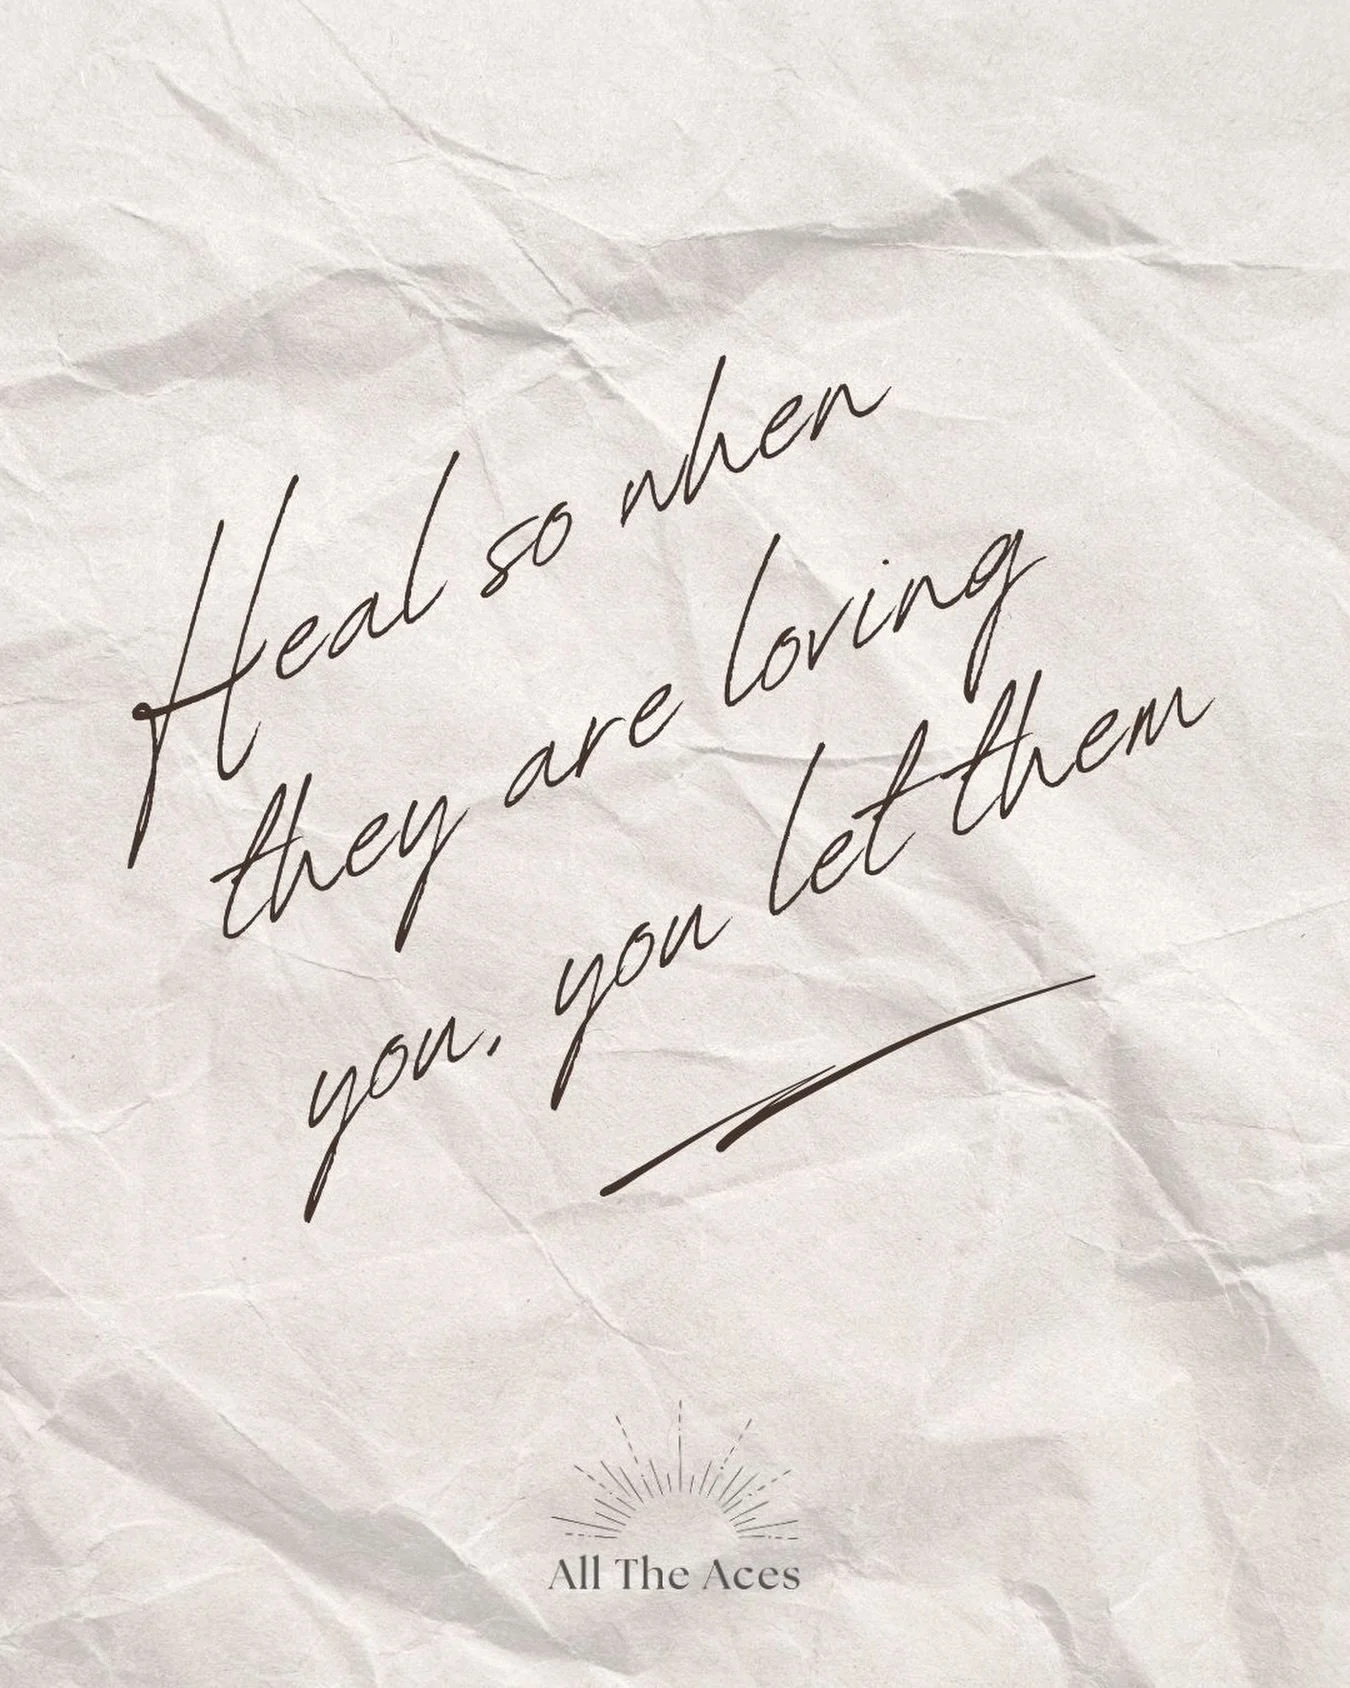 Heal so when
they are loving
you, you let them
All The Aces